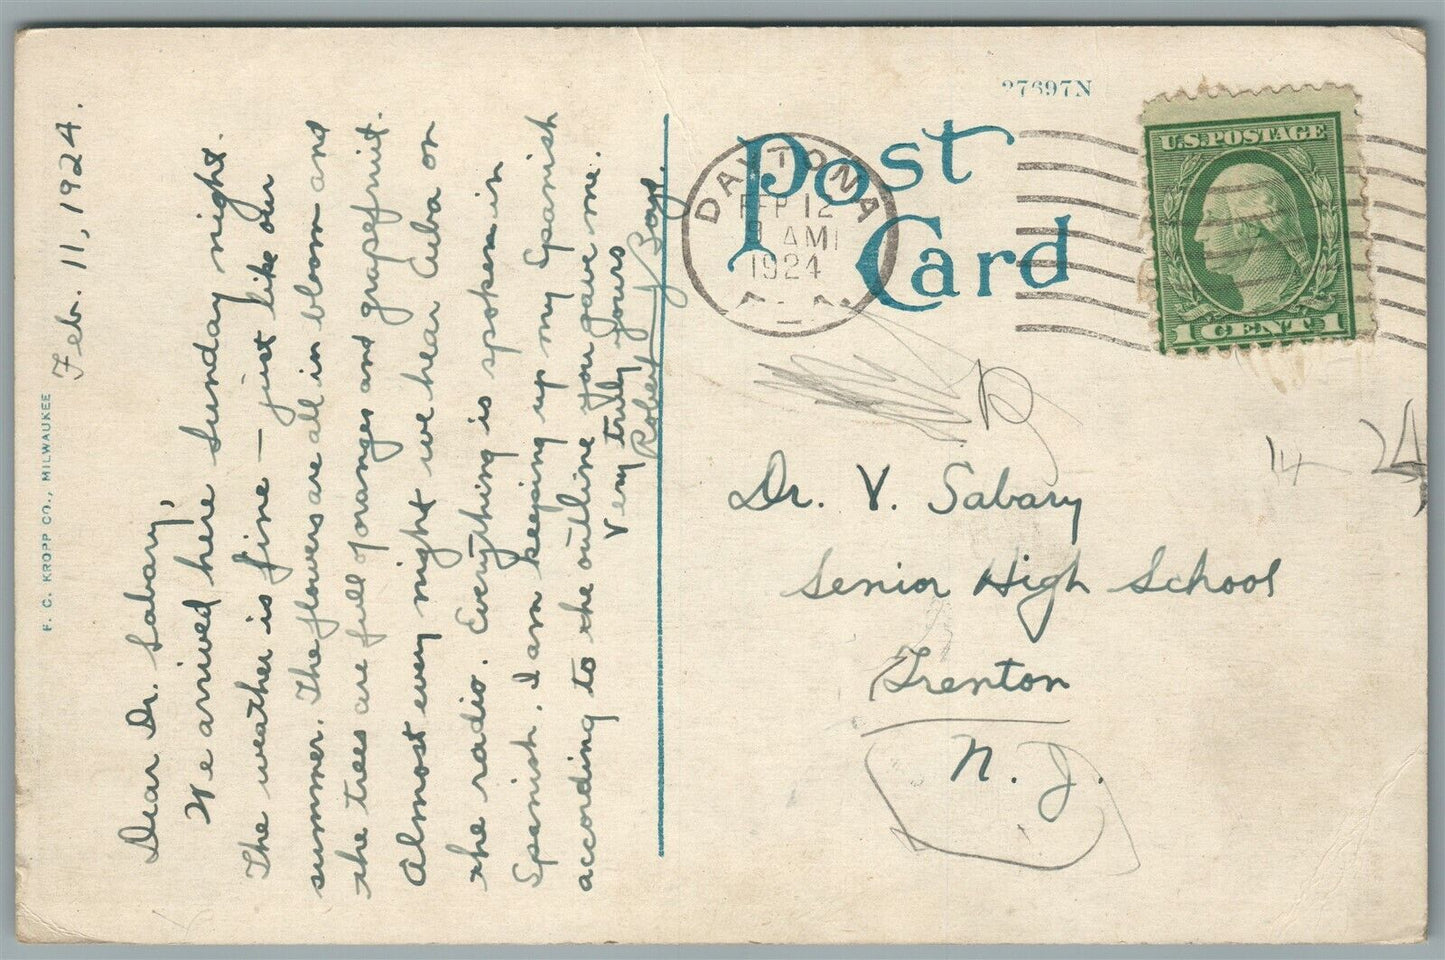 Feb. 11, 1924.
Dear Dr. Sabary,
We arrived here Sunday night.
The weather is fine – just like our
summer. The flowers are all in bloom and
the trees are full of oranges and grapefruit.
Almost every night we hear Cuba on
the radio. Everything is spoken in
Spanish. I am keeping up my Spanish
according to the outline you gave me.
Very truly yours
Robert
F. C. KROPP CO., MILWAUKEE
27697N
Post
Card
DAYTONA
FEB 12
AM
1924
FLA.
U.S. POSTAGE
1 CENT 1
Dr. V. Sabary
Senior High School
Trenton
N. J.